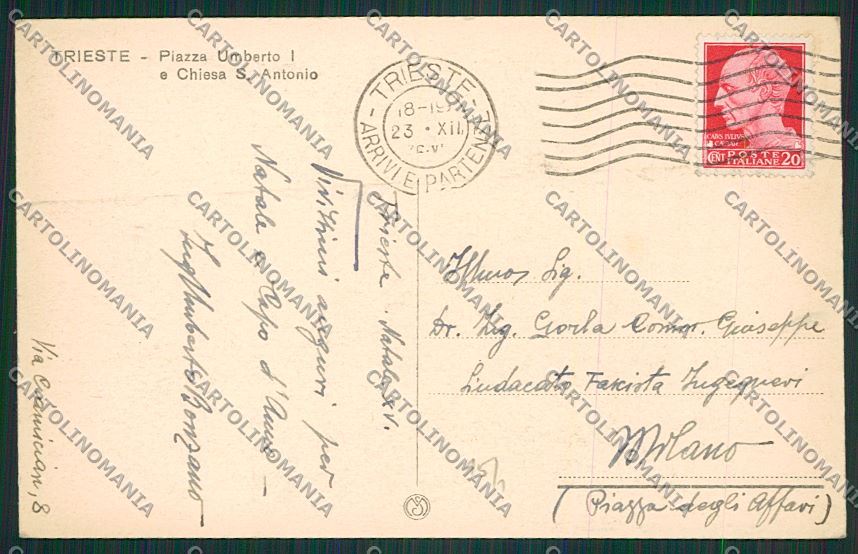 TRIESTE - Piazza Umberto I
e Chiesa S. Antonio
TRIESTE
18-19
23 · XII
ARRIVI E PARTENZE
CAIVS IVLIVS
CAESAR
CENT POSTE 20
ITALIANE
Trieste. Natale XV.
Vivissimi auguri per
Natale e Capo d'Anno -
Ing Umberto Bonzano
Via Crismician, 8
Illmos Sig.
Dr. Ing. Gorla Comm. Giuseppe
Sindacato Fascista Ingegneri
Milano
(Piazza degli Affari)
CARTOLINOMANIA